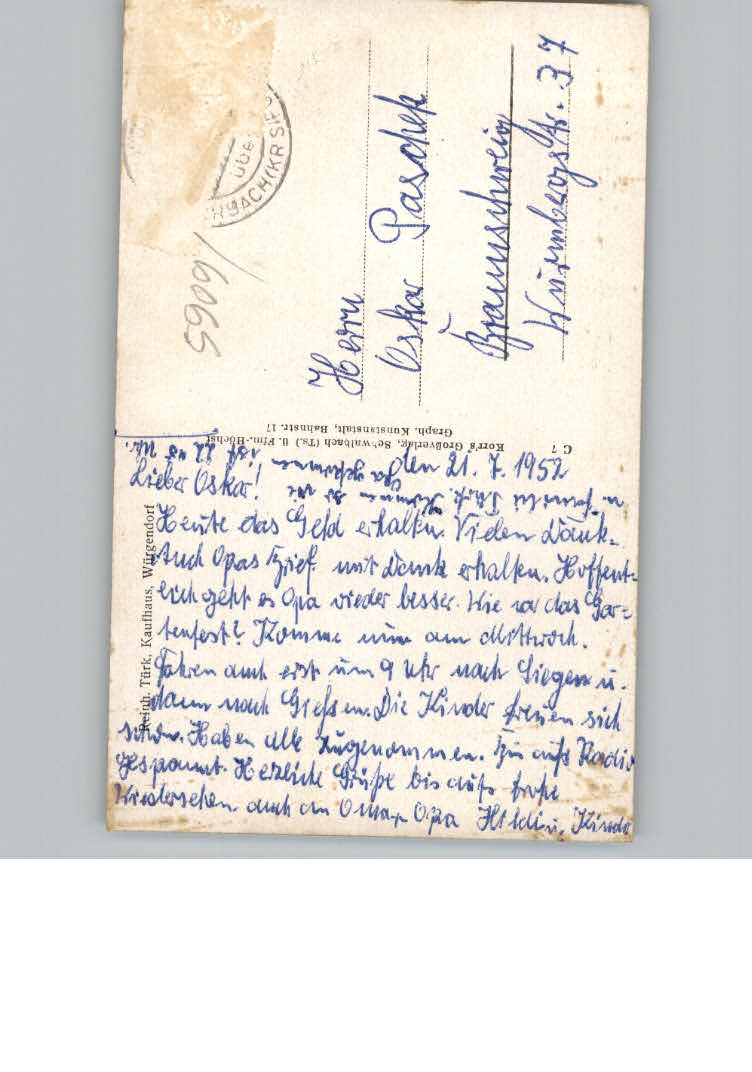 Herrn
Oskar Paschek
Braunschweig
Wurmbergstr. 37
5909/
BACH(KRSIE
über
C 7 Korr's Großverlag, Schwalbach (Ts.) ü. Ffm.-Höchst
Graph. Kunstanstalt, Bahnstr. 17
Reinh. Türk, Kaufhaus, Würgendorf
den 21. 7. 1952
Lieber Oskar!
Heute das Geld erhalten. Vielen Dank.
Auch Opas Brief mit Dank erhalten. Hoffent-
lich geht es Opa wieder besser. Wie war das Gar-
tenfest? Komme nun am Mittwoch.
Fahren auch erst um 9 Uhr nach Siegen u.
dann nach Giessen. Die Kinder freuen sich
schon. Haben alle zugenommen. Bin aufs Radio
gespannt. Herzliche Grüße bis aufs frohe
Wiedersehen auch an Oma u. Opa Hilde u. Kinder